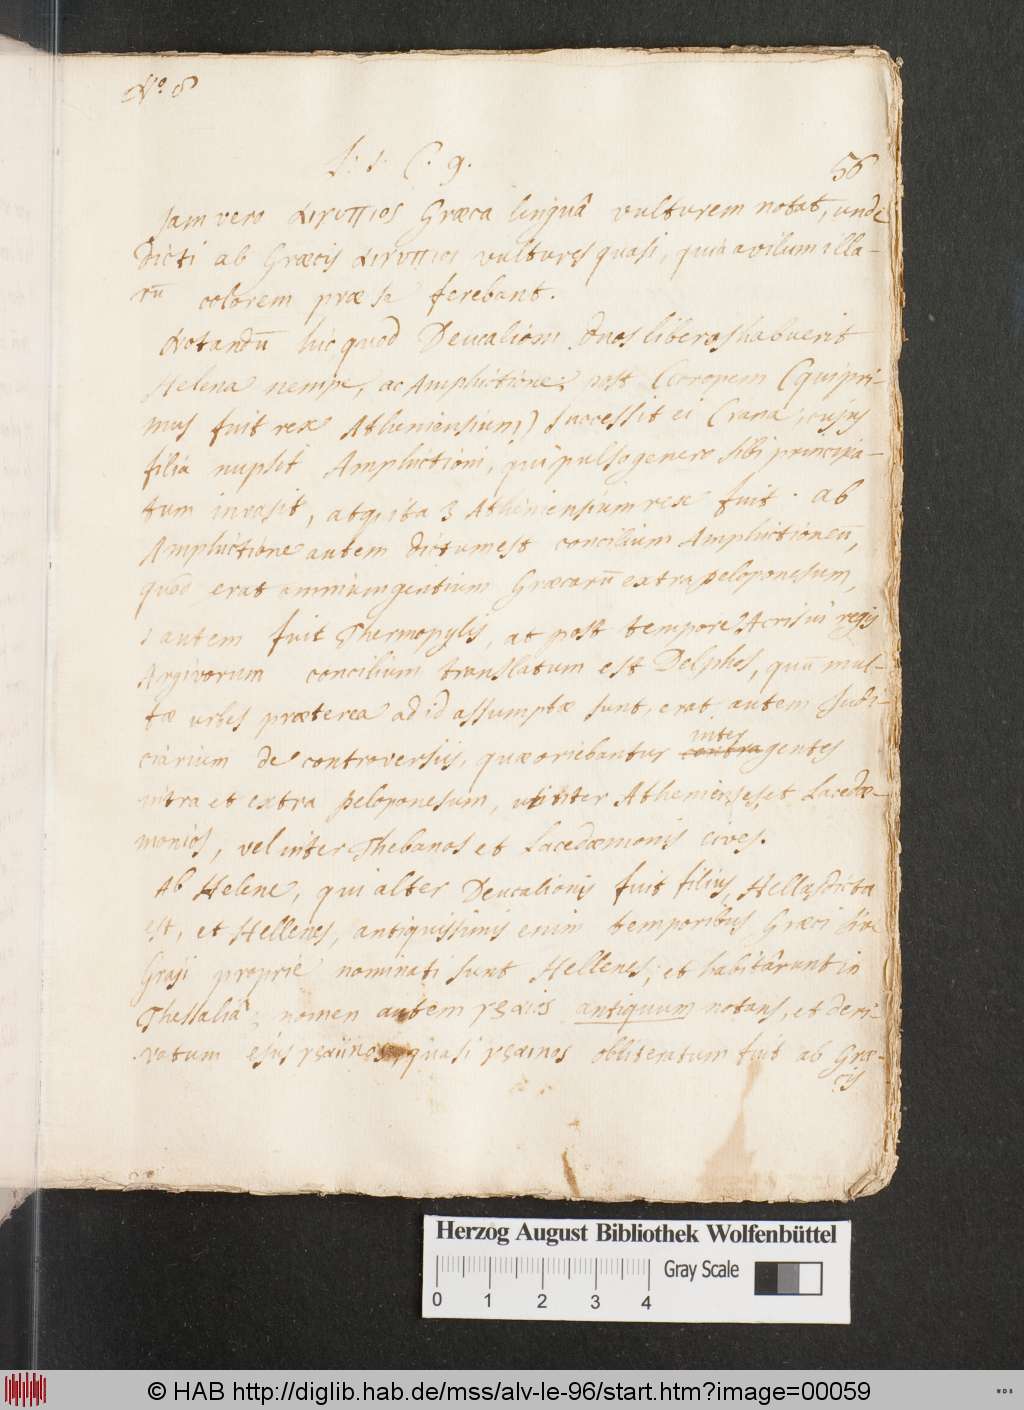 No. 8
L: 1. C. 9.
56
Jam vero αιγυπιος Græca linguâ vulturem notat, unde
dicti ab Græcis αιγυπιοι vultures quasi, quia avium illa-
rū colorem præ se ferebant.
Notandū hic quod Deucalion duos liberos habuerit
Helena nempe, ac Amphictione; post Cecropem (qui pri-
mus fuit rex Atheniensium) successit ei Crana, cujus
filia nupsit Amphictioni, qui pulso genero sibi principa-
tum invasit, atq; ita 3 Atheniensium rex fuit. Ab
Amphictione autem dictum est concilium Amphictioneū,
quod erat omnium gentium Græcarū extra peloponesum,
autem fuit Thermopylis, at post tempore Acrisii regis
Argivorum concilium translatum est Delphos, quū mul-
tæ urbes præterea ad id assumptæ sunt, erat autem Judi-
ciarium de controversiis, quæ oriebantur contra inter gentes
intra et extra peloponesum, uti inter Athenienses et Lacedæ-
monios, vel inter Thebanos et Lacedæmonis cives.
Ab Helene, qui alter Deucalionis fuit filius, Hellas dicta
est, et Hellenes, antiquissimis enim temporibus Græci sive
Graji proprie nominati sunt Hellenes; et habitârunt in
Thessaliâ; nomen autem γραιος antiquum notans, et deri-
vatum ejus γραιικος, quasi γραικος obliteratum fuit ab Græ-
cis
Herzog August Bibliothek Wolfenbüttel
Gray Scale
0 1 2 3 4
© HAB http://diglib.hab.de/mss/alv-le-96/start.htm?image=00059